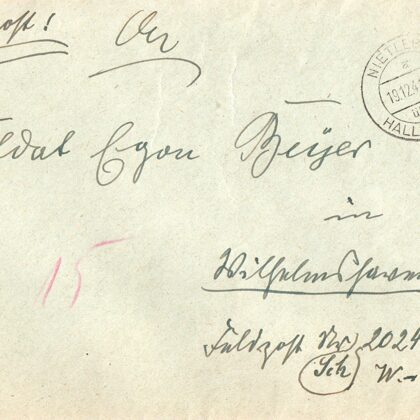 ost! An
NIETLEB
a
19.12.4
HALL
ldat Egon Beyer
in
15
Wilhelmshaven
Feldpost Nr 2024
Sch W.-